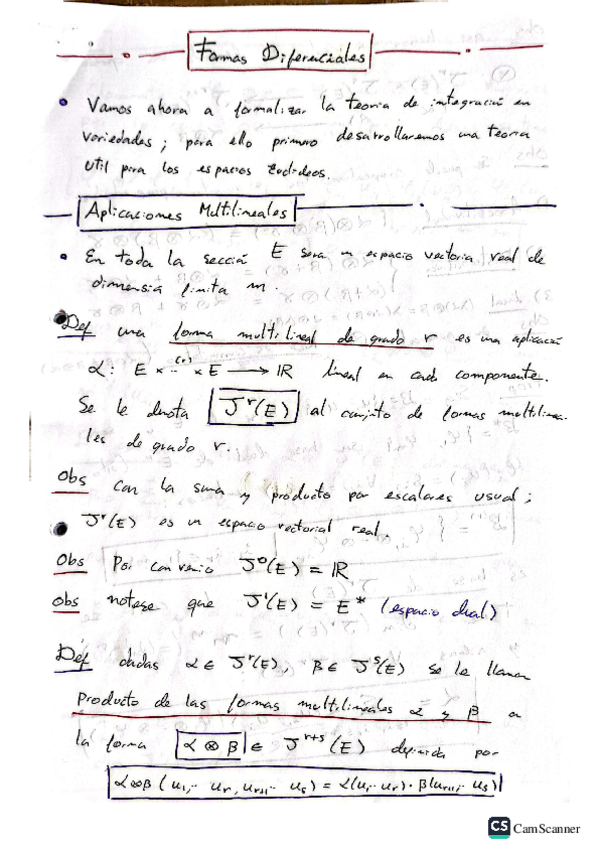 Formas Diferenciales
• Vamos ahora a formalizar la teoria de integración en
variedades; para ello primero desarrollaremos una teoria
util para los espacios Euclideos.
Aplicaciones Multilineales
• En toda la sección E sera un espacio vectoria real de
dimensión finita m.
Def una forma multilineal de grado r es una aplicación
α: E × ··(r)·· × E → ℝ lineal en cada componente.
Se le denota J^r(E) al conjunto de formas multilinea-
les de grado r.
Obs con la suma y producto por escalares usual;
J^r(E) es un espacio vectorial real.
Obs Por convenio J^0(E) = ℝ
obs notese que J^1(E) = E* (espacio dual)
Def dadas α ∈ J^r(E), β ∈ J^s(E) se le llaman
Producto de las formas multilineales α y β a
la forma α ⊗ β ∈ J^{r+s}(E) definida por
α⊗β (u_1,·· u_r, u_{r+1}·· u_s) = α(u_1·· u_r) · β(u_{r+1}·· u_s)
CS CamScanner